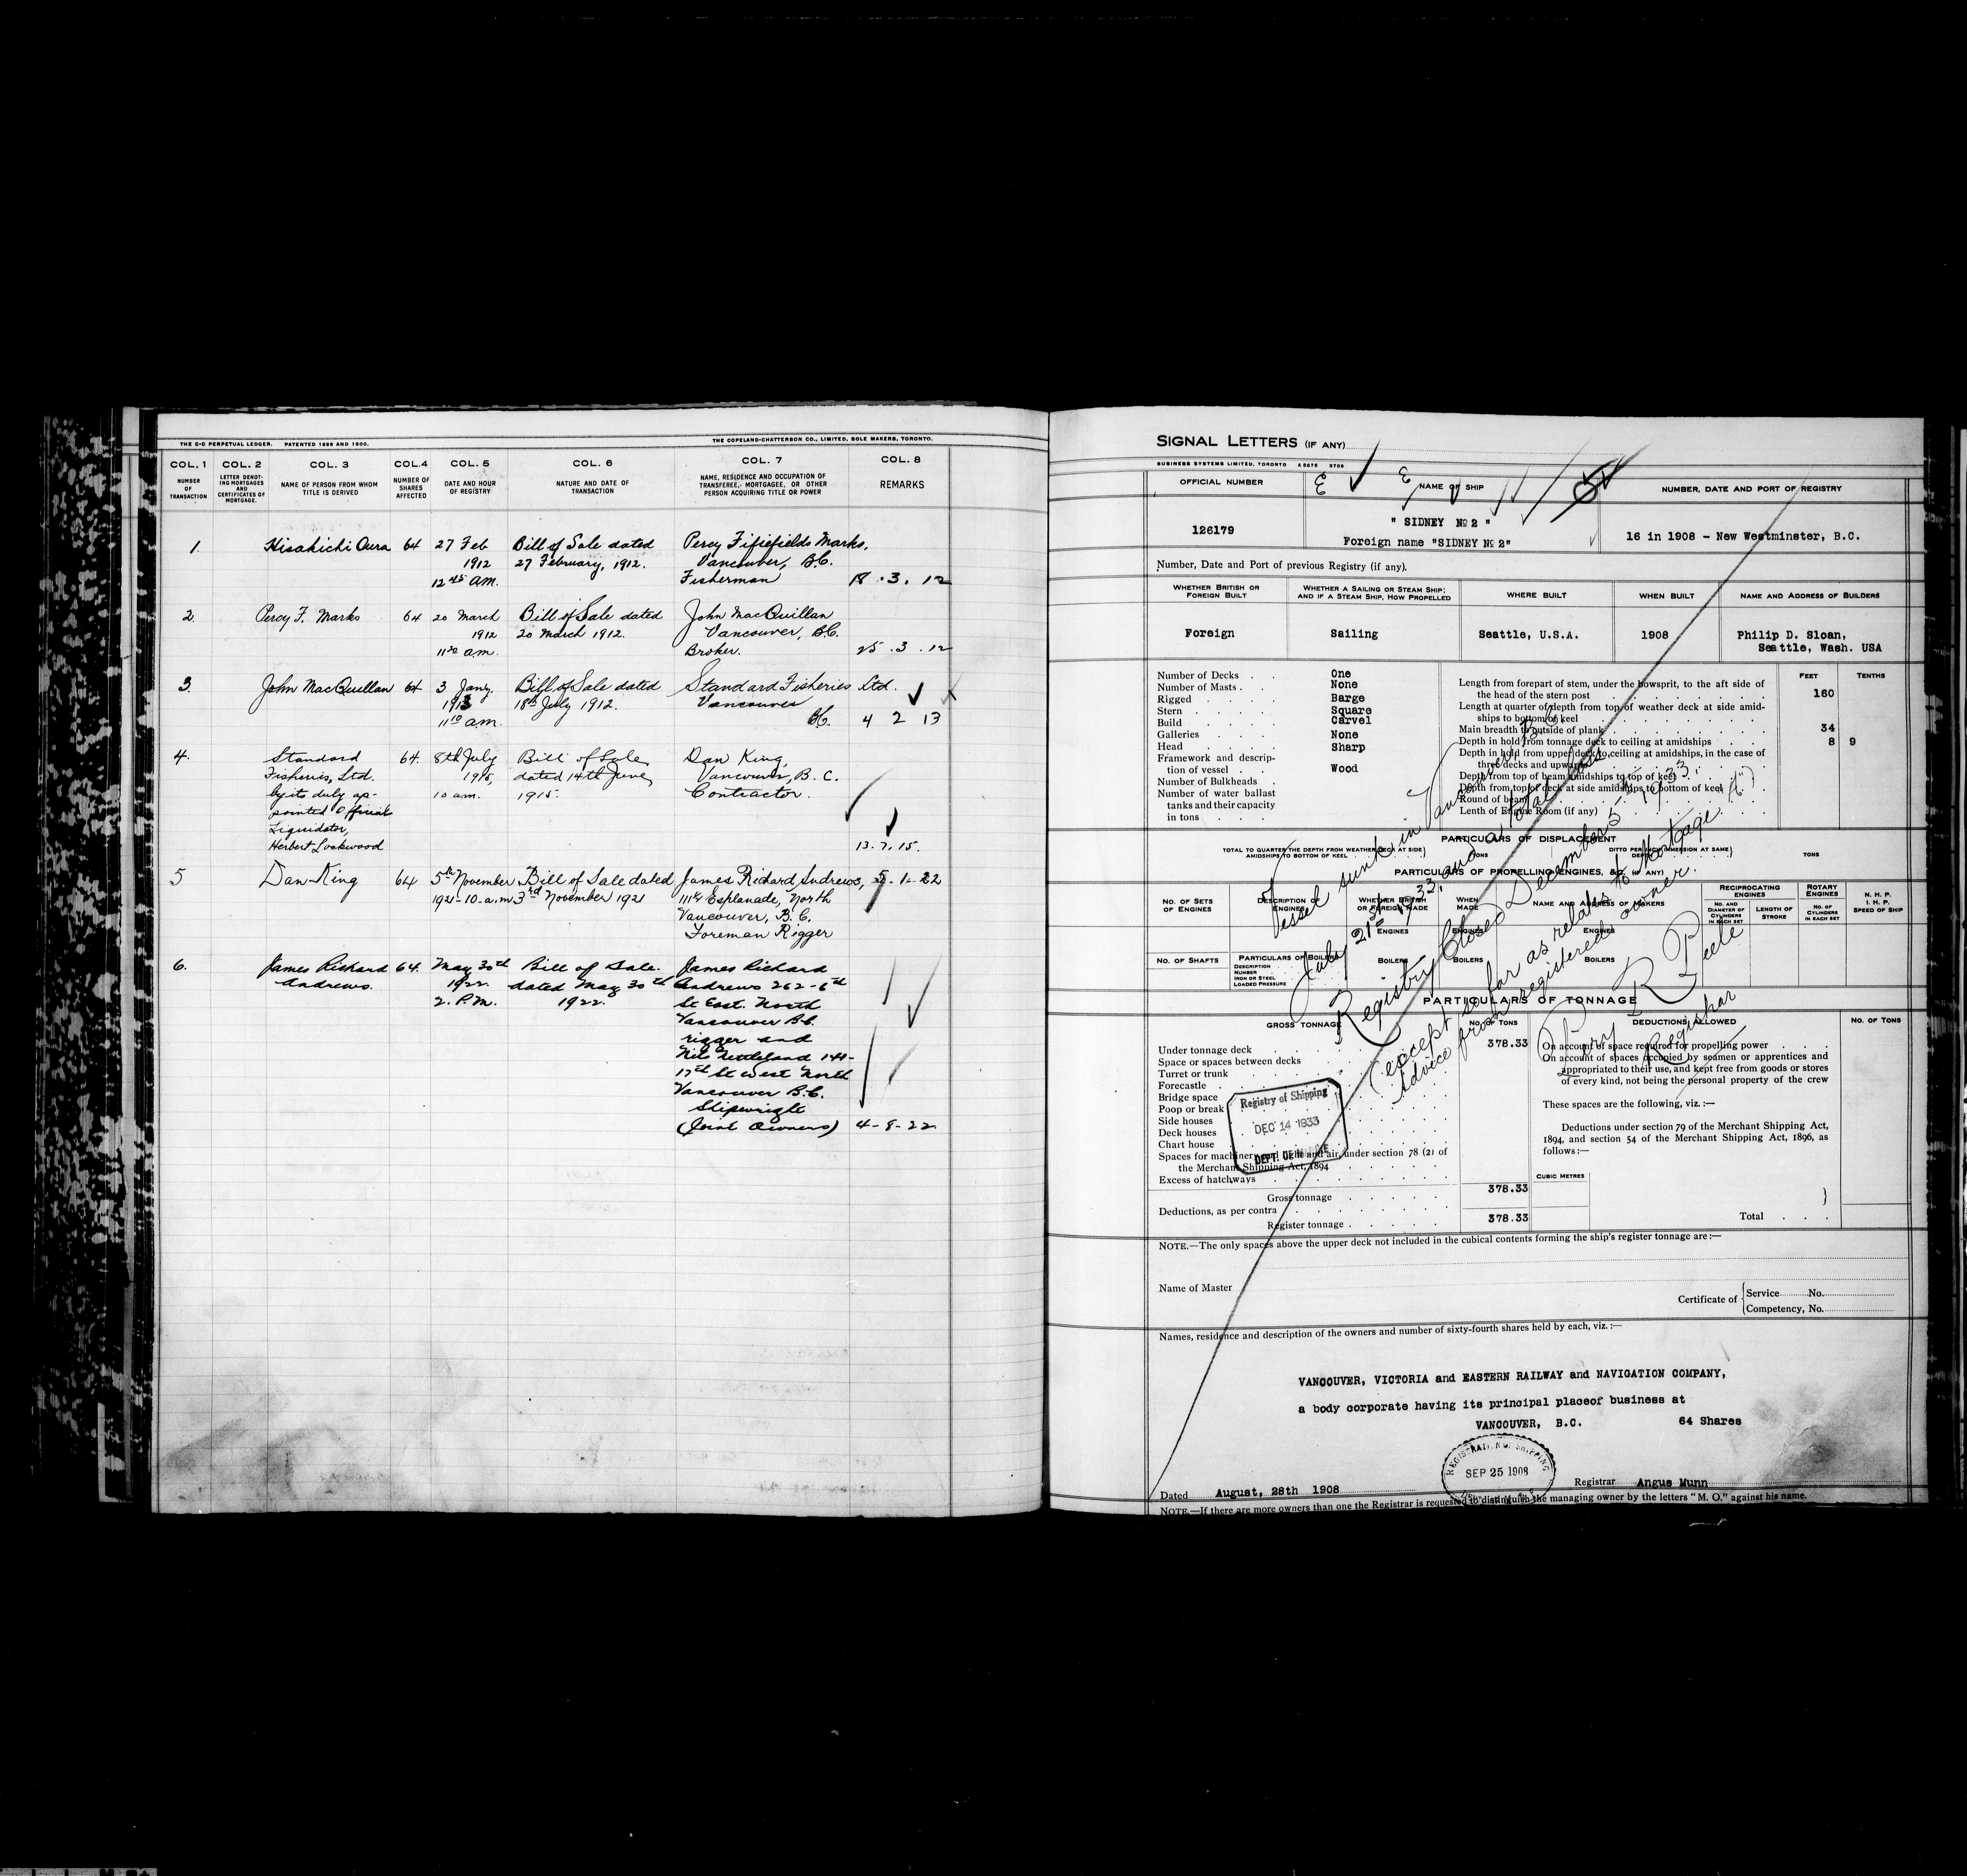 THE C-C PERPETUAL LEDGER. PATENTED 1896 AND 1900. THE COPELAND-CHATTERSON CO., LIMITED, SOLE MAKERS, TORONTO.
COL. 1 COL. 2 COL. 3 COL. 4 COL. 5 COL. 6 COL. 7 COL. 8
NUMBER OF TRANSACTION LETTER DENOTING MORTGAGES AND CERTIFICATES OF MORTGAGE. NAME OF PERSON FROM WHOM TITLE IS DERIVED NUMBER OF SHARES AFFECTED DATE AND HOUR OF REGISTRY NATURE AND DATE OF TRANSACTION NAME, RESIDENCE AND OCCUPATION OF TRANSFEREE, MORTGAGEE, OR OTHER PERSON ACQUIRING TITLE OR POWER REMARKS
1. Hisakichi Oura 64 27 Feb Bill of Sale dated Percy Fifiefields Marks,
1912 27 February, 1912. Vancouver, B.C.
12 45 am. Fisherman 18 . 3 . 12
2. Percy F. Marks 64 20 March Bill of Sale dated John MacQuillan
1912 20 March 1912. Vancouver, B.C.
11 30 am. Broker. 25 . 3 . 12
3. John MacQuillan 64 3 Jany. Bill of Sale dated Standard Fisheries Ltd.
1913 18th July 1912. Vancouver
11 10 a.m. BC. 4 2 13
4. Standard 64 8th July Bill of Sale Dan King,
Fisheries, Ltd. 1915, dated 14th June Vancouver, B.C.
by its duly ap- 10 am. 1915. Contractor.
pointed Official
Liquidator,
Herbert Lockwood 13.7.15.
5 Dan King 64 5th November Bill of Sale dated James Richard Andrews, 1.22
1921-10.a.m 3rd November 1921 Esplanade, North
Vancouver, B.C.
Foreman Rigger
6. James Richard 64. May 30th Bill of Sale. James Richard
Andrews. 1922. dated May 30th Andrews 262-6th
2. P.M. 1922. St East. North
Vancouver B.C.
rigger and
17th St West North
Vancouver B.C.
Shipwright
(Joint Owners) 4-8-22
SIGNAL LETTERS (IF ANY)
BUSINESS SYSTEMS LIMITED, TORONTO
OFFICIAL NUMBER NAME OF SHIP NUMBER, DATE AND PORT OF REGISTRY
126179 " SIDNEY No 2 " 16 in 1908 - New Westminster, B.C.
Foreign name "SIDNEY No 2"
Number, Date and Port of previous Registry (if any).
WHETHER BRITISH OR FOREIGN BUILT WHETHER A SAILING OR STEAM SHIP; AND IF A STEAM SHIP, HOW PROPELLED WHERE BUILT WHEN BUILT NAME AND ADDRESS OF BUILDERS
Foreign Sailing Seattle, U.S.A. 1908 Philip D. Sloan,
Seattle, Wash. USA
FEET TENTHS
Number of Decks One
Number of Masts None
Rigged Barge
Stern Square
Build Carvel
Galleries None
Head Sharp
Framework and description of vessel Wood
Number of Bulkheads
Number of water ballast tanks and their capacity in tons
Length from forepart of stem, under the bowsprit, to the aft side of the head of the stern post 160
Length at quarter of depth from top of weather deck at side amidships to bottom of keel
Main breadth to outside of plank 34
Depth in hold from tonnage deck to ceiling at amidships 8 9
Depth in hold from upper deck to ceiling at amidships, in the case of three decks and upwards
Depth from top of beam amidships to top of keel
Depth from top of deck at side amidships to bottom of keel
Round of beam
Lenth of Engine Room (if any)
PARTICULARS OF DISPLACEMENT
TOTAL TO QUARTER THE DEPTH FROM WEATHER DECK AT SIDE AMIDSHIPS TO BOTTOM OF KEEL TONS DITTO PER INCH IMMERSION AT SAME DEPTH TONS
PARTICULARS OF PROPELLING ENGINES, &c. (IF ANY)
NO. OF SETS OF ENGINES DESCRIPTION OF ENGINES WHETHER BRITISH OR FOREIGN MADE WHEN MADE NAME AND ADDRESS OF MAKERS RECIPROCATING ENGINES ROTARY ENGINES N. H. P. I. H. P. SPEED OF SHIP
NO. AND DIAMETER OF CYLINDERS IN EACH SET LENGTH OF STROKE NO. OF CYLINDERS IN EACH SET
ENGINES ENGINES ENGINES
NO. OF SHAFTS PARTICULARS OF BOILERS BOILERS BOILERS BOILERS
DESCRIPTION
NUMBER
IRON OR STEEL
LOADED PRESSURE
Vessel sunk in Vancouver B.C.
July 21st 1933, and a total loss.
Registry Closed December 5th 1933.
(except so far as relates to Mortgage (")
Advice from registered owner.
R Peele
Registrar
PARTICULARS OF TONNAGE
GROSS TONNAGE NO. OF TONS DEDUCTIONS ALLOWED NO. OF TONS
Under tonnage deck 378.33
Space or spaces between decks
Turret or trunk
Forecastle
Bridge space
Poop or break
Side houses
Deck houses
Chart house
Spaces for machinery, and light and air, under section 78 (2) of the Merchant Shipping Act, 1894
Excess of hatchways
Gross tonnage 378.33
Deductions, as per contra
Register tonnage 378.33
On account of space required for propelling power
On account of spaces occupied by seamen or apprentices and appropriated to their use, and kept free from goods or stores of every kind, not being the personal property of the crew
These spaces are the following, viz.:—
Deductions under section 79 of the Merchant Shipping Act, 1894, and section 54 of the Merchant Shipping Act, 1896, as follows:—
CUBIC METRES
Total
Registry of Shipping
DEC 14 1933
DEPT. OF MARINE
NOTE.—The only spaces above the upper deck not included in the cubical contents forming the ship's register tonnage are:—
Name of Master
Certificate of Service No.
Competency, No.
Names, residence and description of the owners and number of sixty-fourth shares held by each, viz.:—
VANCOUVER, VICTORIA and EASTERN RAILWAY and NAVIGATION COMPANY,
a body corporate having its principal placeof business at
VANCOUVER, B.C. 64 Shares
SEP 25 1908
Dated August, 28th 1908 Registrar Angus Munn
NOTE.—If there are more owners than one the Registrar is requested to distinguish the managing owner by the letters "M. O." against his name.